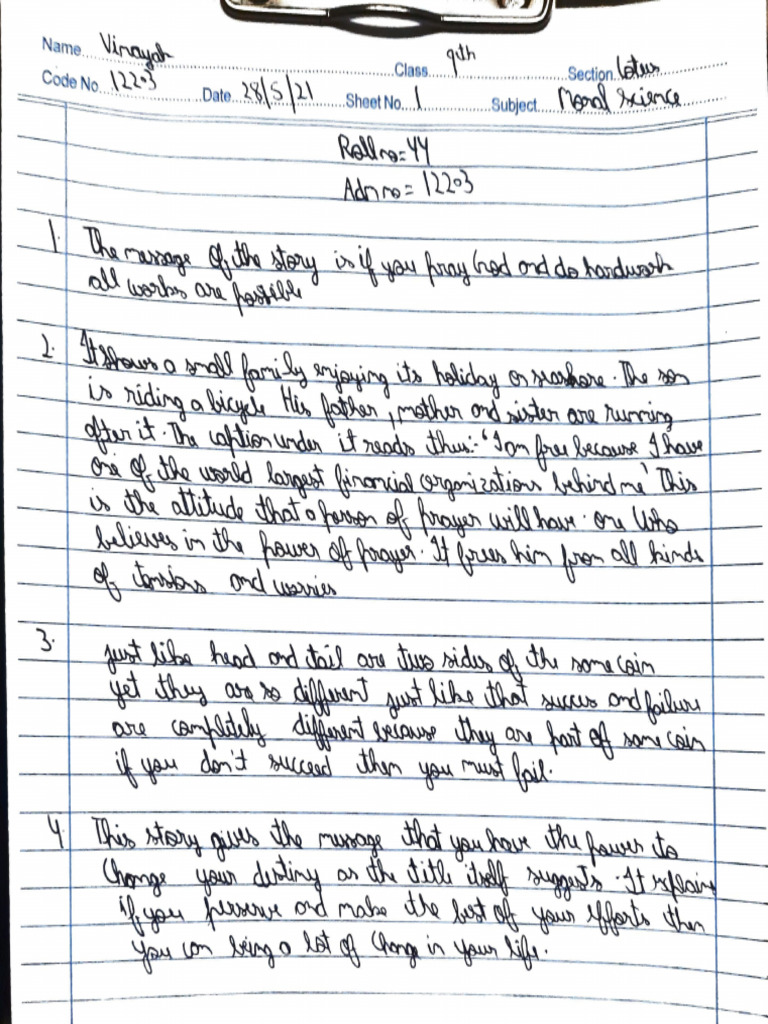 Name Vinayak Class 9th Section Lotus
Code No. 12203 Date 28/5/21 Sheet No. 1 Subject Moral Science
Roll no = 44
Adn no = 12203
1. The message of the story is if you pray God and do hardwork
all works are possible
2. It shows a small family enjoying its holiday on seashore. The son
is riding a bicycle His father, mother and sister are running
after it. The caption under it reads thus:- 'I am free because I have
one of the world largest financial organizations behind me' This
is the attitude that a person of prayer will have. one who
believes in the power of prayer. It frees him from all kinds
of tensions and worries
3. just like head and tail are two sides of the same coin
yet they are so different just like that succes and failure
are completely different because they are part of same coin
if you don't succeed then you must fail.
4. This story gives the message that you have the power to
change your destiny as the title itself suggests. It explains
if you perserve and make the best of your efforts then
you can bring a lot of change in your life.